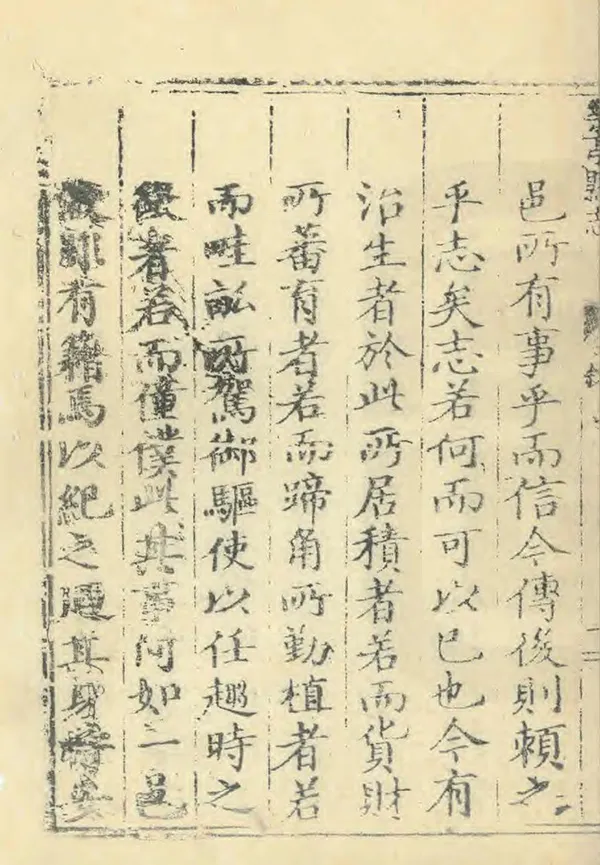 縣志
邑所有事乎而信今傳後則賴之
乎志矣志若何而可以已也今有
治生者於此所居積者若而貨財
所蕃育者若而蹄角所勤植者若
而畦畝所駕御驅使以任趨時之
者若而僮僕此其事何如一邑
有籍焉以紀之其